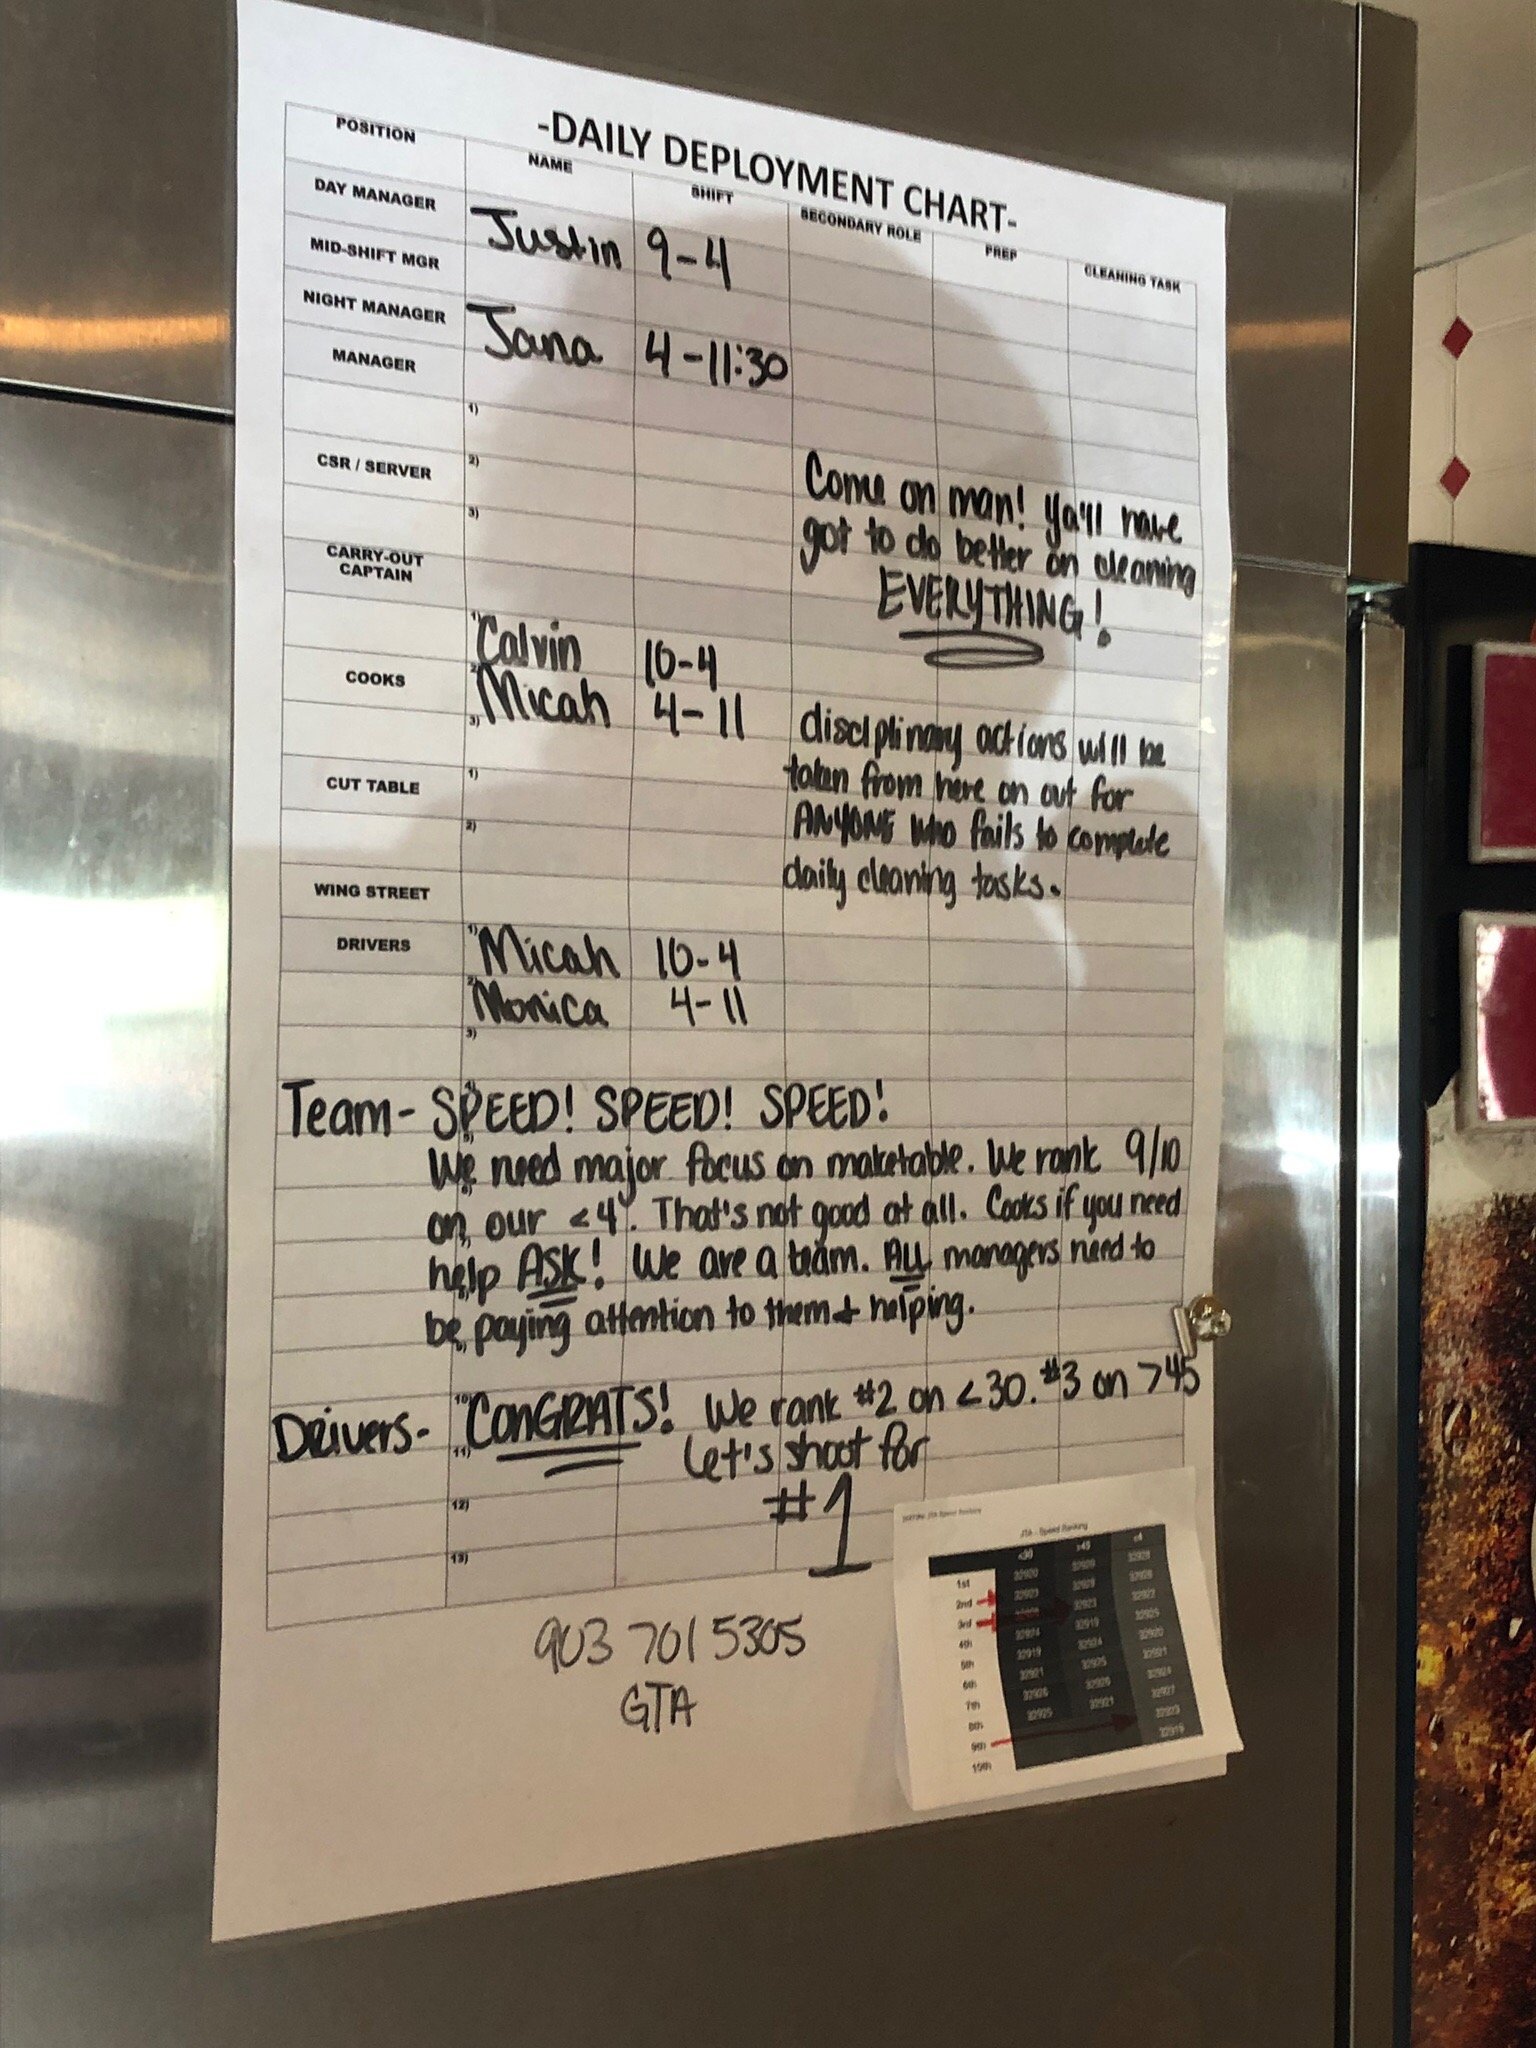 -DAILY DEPLOYMENT CHART-
POSITION NAME SHIFT SECONDARY ROLE PREP CLEANING TASK
DAY MANAGER Justin 9-4
MID-SHIFT MGR
NIGHT MANAGER Jana 4-11:30
MANAGER
1)
CSR / SERVER 2)
3)
Come on man! Ya'll have
got to do better on cleaning
EVERYTHING!
CARRY-OUT
CAPTAIN
1) Calvin 10-4
COOKS 2) Micah 4-11
3)
disciplinary actions will be
taken from here on out for
ANYONE who fails to complete
daily cleaning tasks.
CUT TABLE 1)
2)
WING STREET
DRIVERS 1) Micah 10-4
2) Monica 4-11
3)
Team- SPEED! SPEED! SPEED!
We need major focus on maketable. We rank 9/10
on our <4'. That's not good at all. Cooks if you need
help ASK! We are a team. ALL managers need to
be paying attention to them + helping.
10)
Drivers- CONGRATS! We rank #2 on <30. #3 on >45
11)
Let's shoot for
#1
12)
13)
903 701 5305
GTA
JTA - Speed Ranking
<30 >45 <4
1st
2nd
3rd
4th
5th
6th
7th
8th
9th
10th